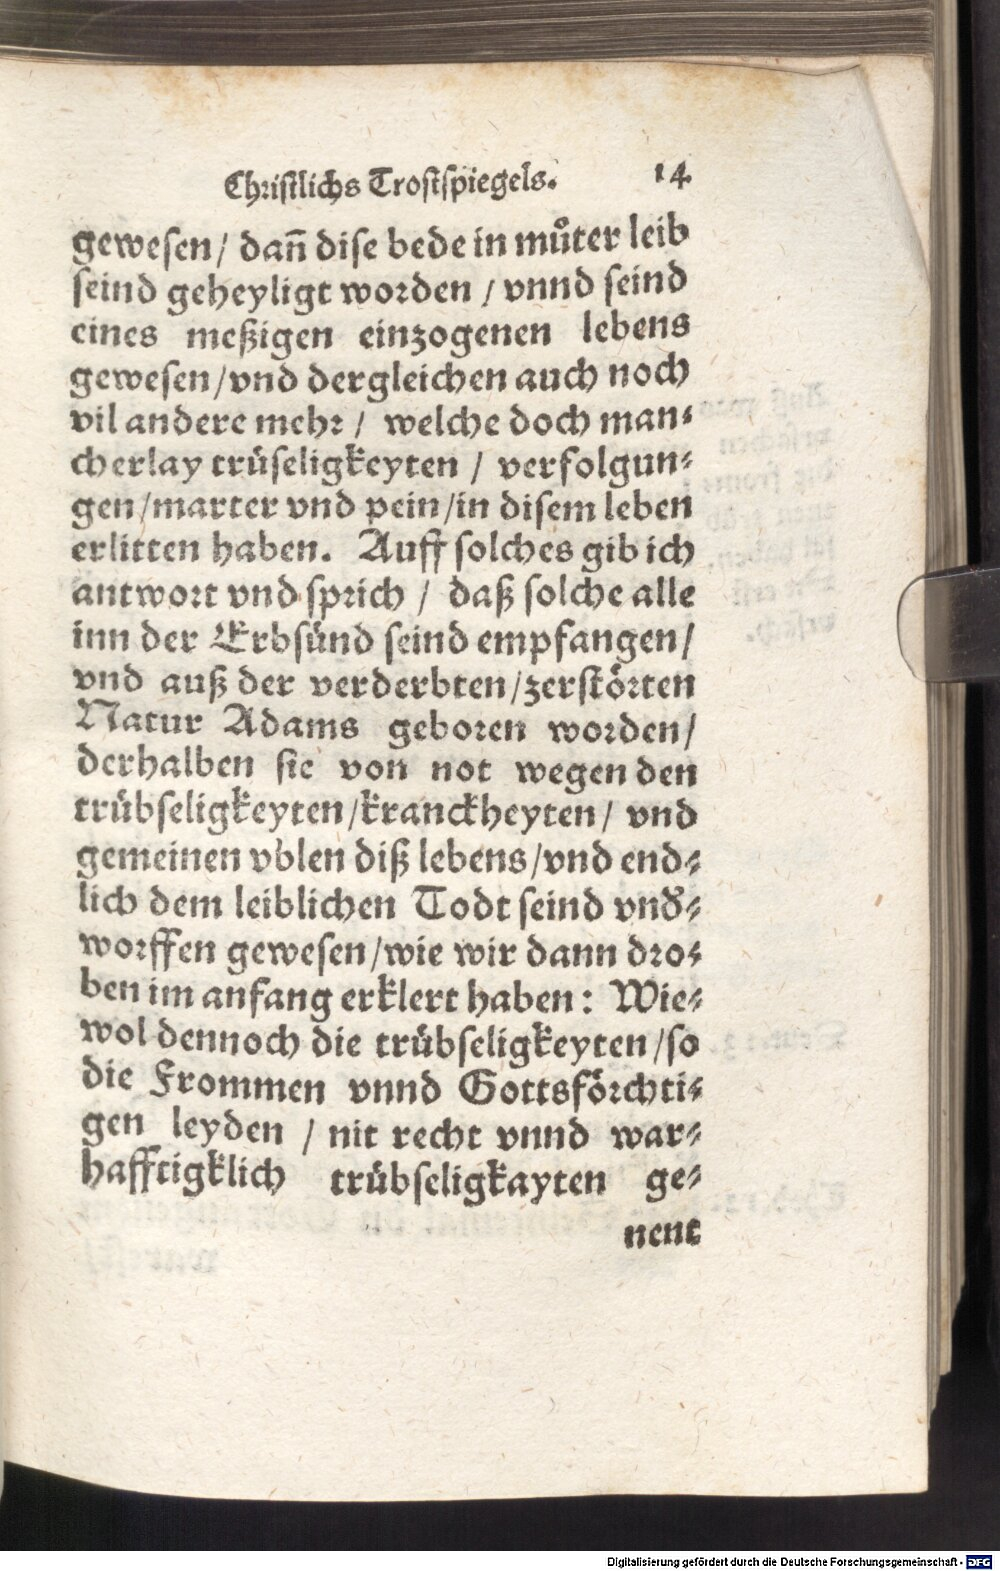 Christlichs Trostspiegels. 14
gewesen/ dañ dise bede in můter leib
seind geheyligt worden / vnnd seind
eines meßigen einzogenen lebens
gewesen/vnd dergleichen auch noch
vil andere mehr / welche doch man⸗
cherlay trüseligkeyten / verfolgun⸗
gen/marter vnd pein/in disem leben
erlitten haben. Auff solches gib ich
antwort vnd sprich / daß solche alle
inn der Erbsünd seind empfangen/
vnd auß der verderbten/zerstörten
Natur Adams geboren worden/
derhalben sie von not wegen den
trübseligkeyten/kranckheyten/ vnd
gemeinen vblen diß lebens/vnd end⸗
lich dem leiblichen Todt seind vnđ⸗
worffen gewesen/wie wir dann dro⸗
ben im anfang erklert haben: Wie⸗
wol dennoch die trübseligkeyten/so
die Frommen vnnd Gottsförchti⸗
gen leyden / nit recht vnnd war⸗
hafftigklich trübseligkayten ge⸗
nent
Digitalisierung gefördert durch die Deutsche Forschungsgemeinschaft - DFG